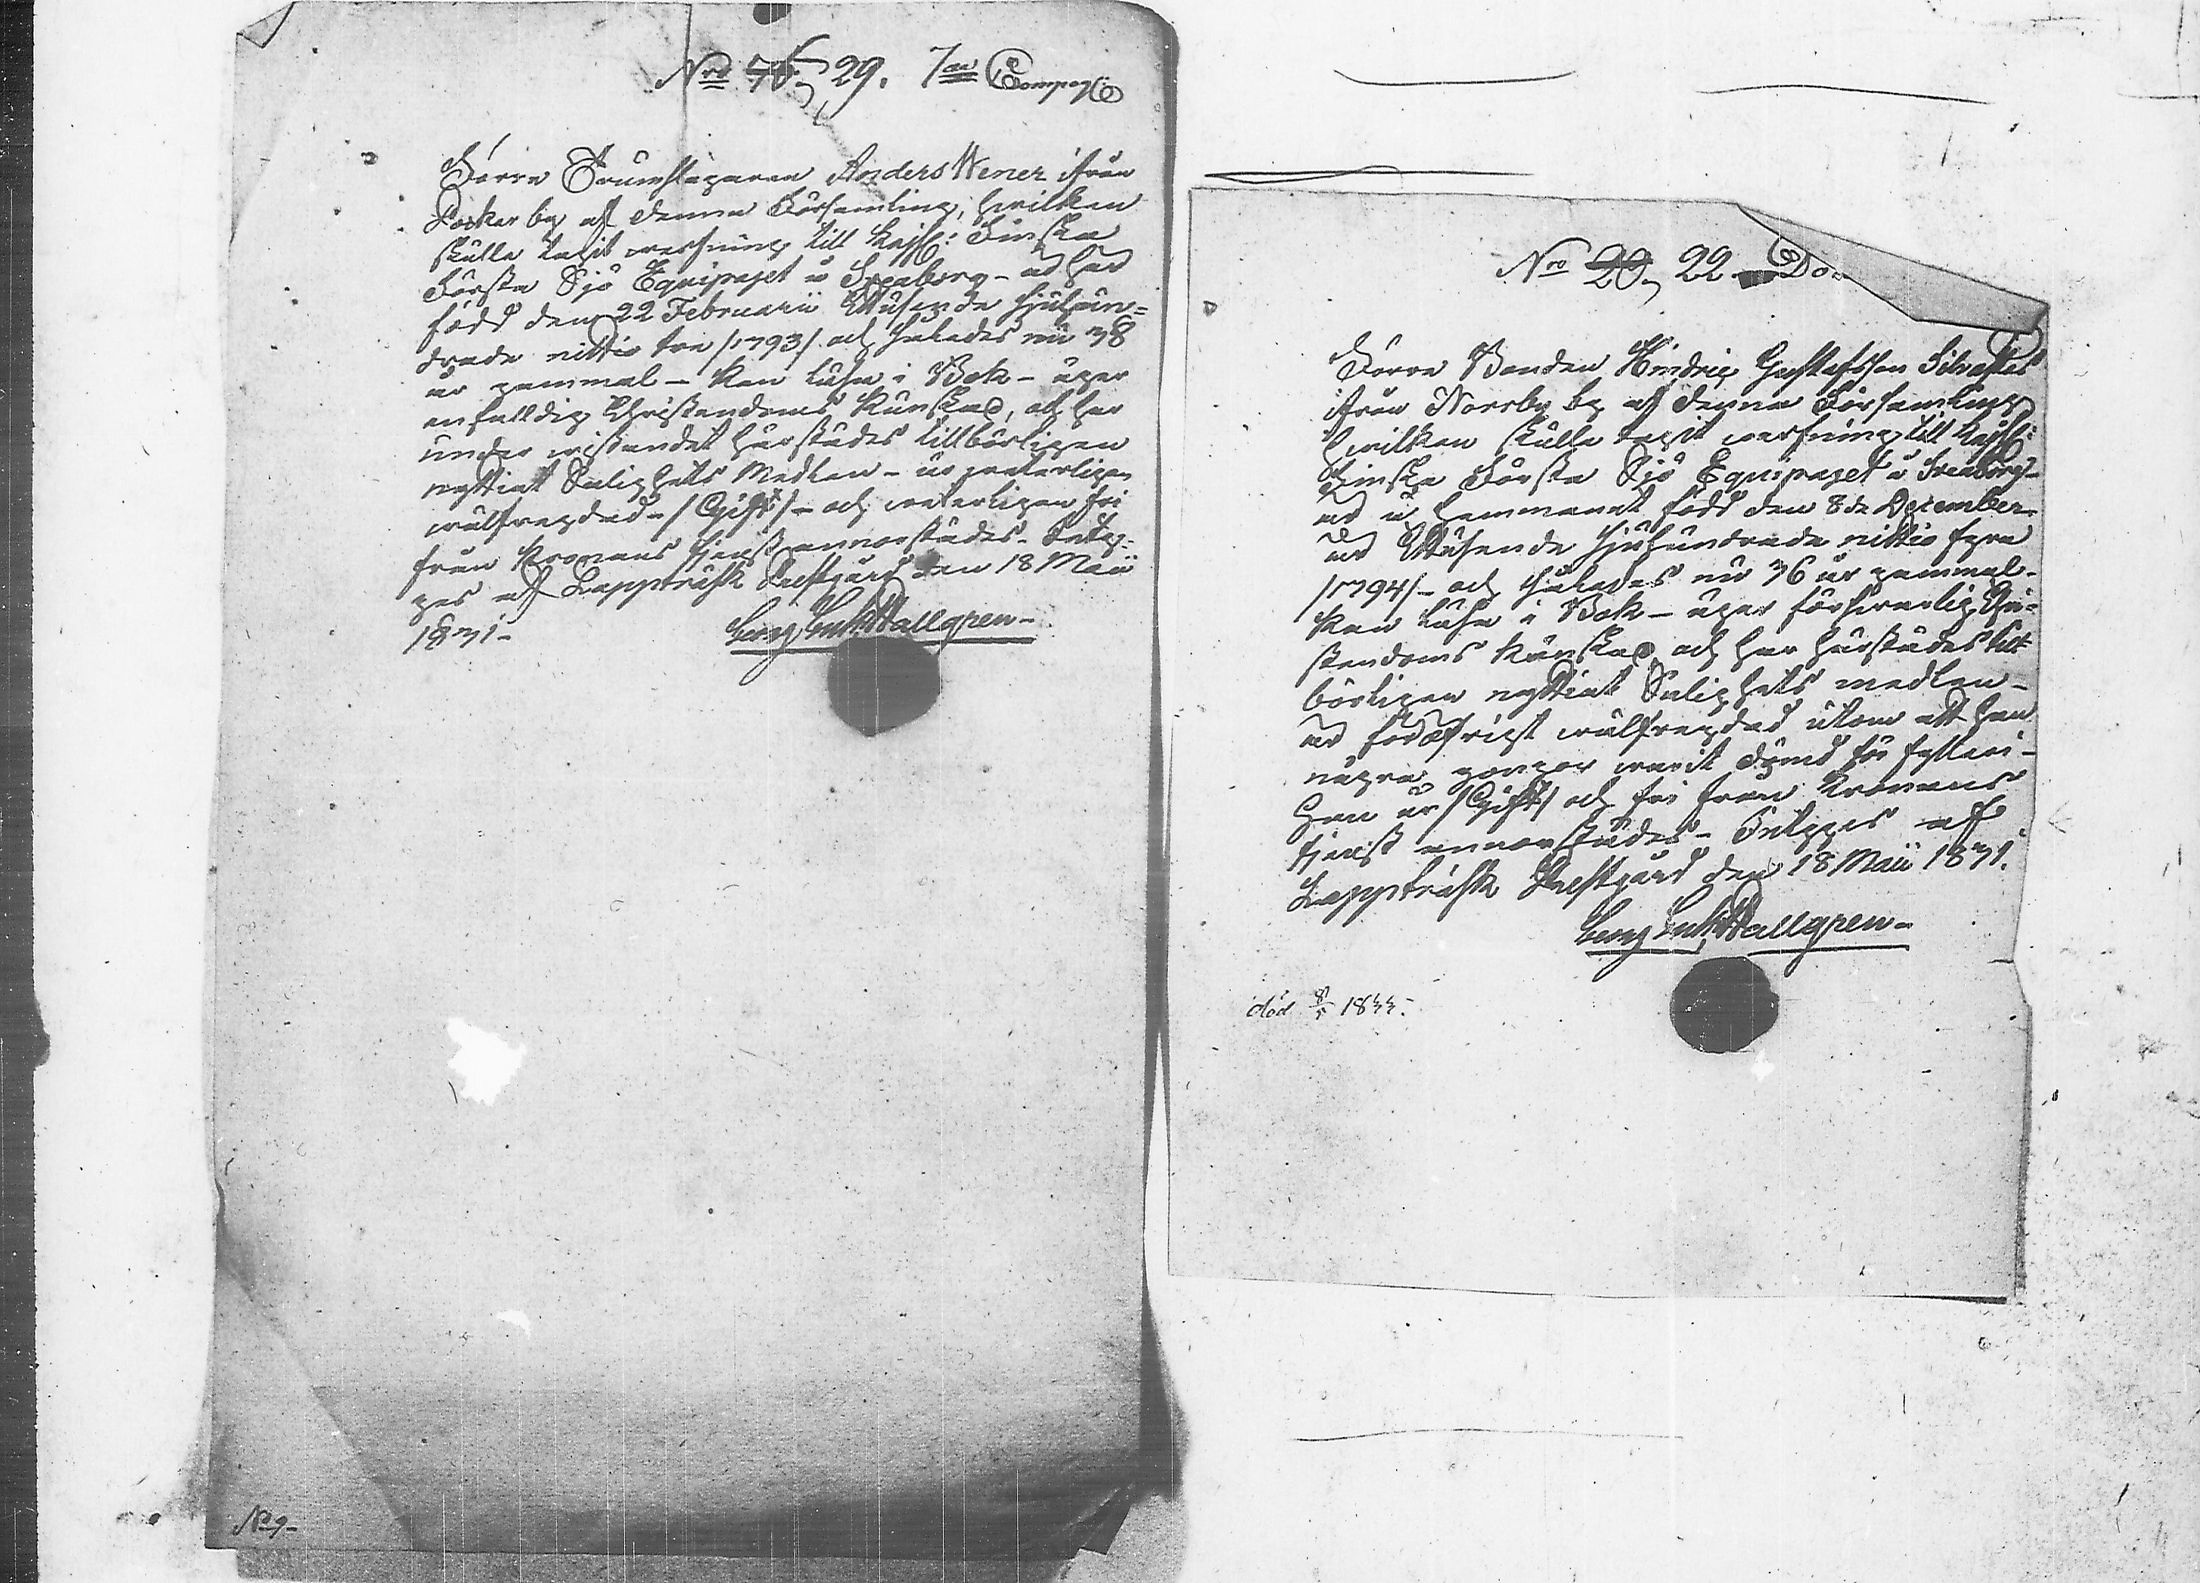 Nro 36. 29. 7de Compag:
Förre Trumslagaren Anders Wener ifrån
Porkar by af denna Församling, hwilken
skulle tagit werfning till Kejs: Finska
Första Sjö Equipaget å Sveaborg – är här
född den 22 Februarii Ettusende Sjuhun=
drade nittio tre /1793/ och således nu 38
år gammal – kan läsa i Bok – äger
enfaldig Christendoms kunskap, och har
under wistandet härstädes tillbörligen
nyttjat Salighets Medlen – är
wälfrägdad – /Gift/ – och weterligen fri
från Kronans tjenst annorstädes – Betyg=
gas af Lappträsk Prestgård den 18 Maii
1831 –
Wallgren –
No 9 –
Nro 20. 22 Do
Förre Bonden Hindric Gustafsson Silvastes
ifrån Norrby by af denna Församling
hwilken skulle tagit werfning till Kejs:
Finska Första Sjö Equipaget å Sveaborg –
är å hemmanet född den 8de December
år Ettusende Sjuhundrade nittio fyra
/1794/ – och således nu 36 år gammal –
kan läsa i Bok – äger förswarlig Chri=
stendoms kunskap och har härstädes till
börligen nyttjat Salighets medlen –
är för öfrigt wälfrägdad utom att han
några gånger warit dömd för fylleri –
Han är /Gift/ och fri från Kronans
tjenst annorstädes – Betygas af
Lappträsk Prestgård den 18 Maii 1831.
Wallgren –
död 8/5 1833.